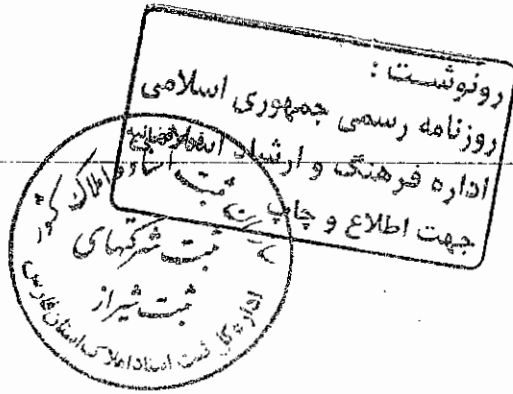 رونوشت :
روزنامه رسمی جمهوری اسلامی
اداره فرهنگ و ارشاد
جهت اطلاع و چاپ
ثبت اسناد و املاک کشور
ثبت شرکتهای
ثبت شیراز
اداره کل ثبت اسناد املاک استان فارس